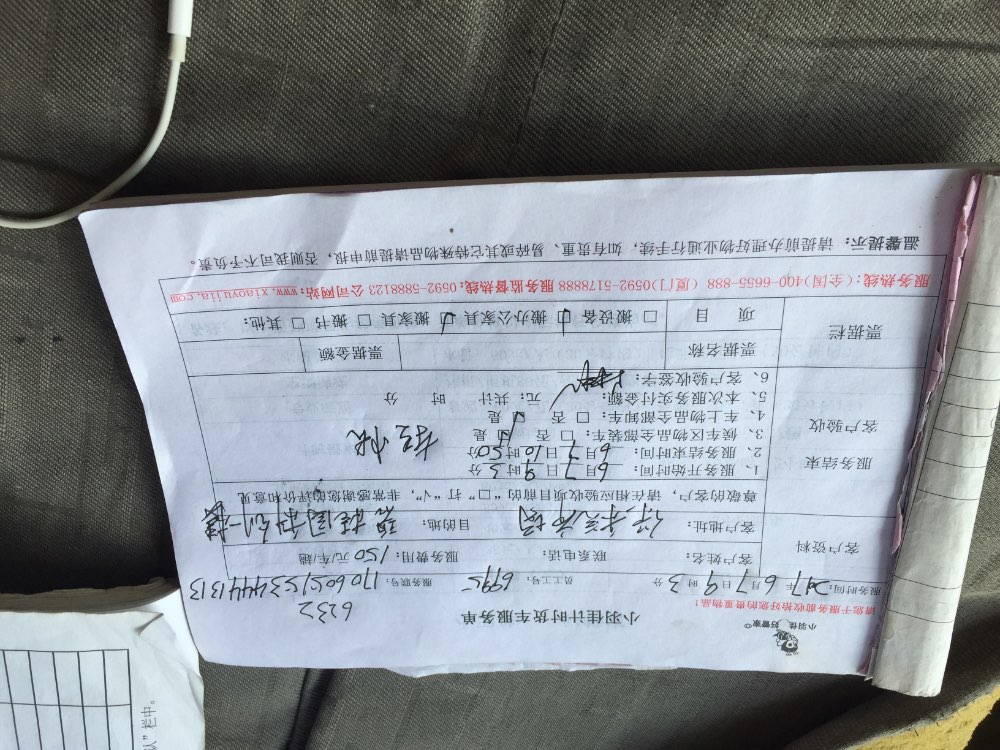 小羽佳 好管家
小羽佳计时货车服务单
6232
请您于服务前收拾好您的贵重物品!
服务时间: 年 6 月 7 日 9 时 3 分 员工工号: 6995 服务账号:
客户资料
客户姓名: 联系电话: 服务费用: 150 元/车趟
客户地址: 目的地:
尊敬的客户,请在相应验收项目前的“□”打“√”,非常感谢您的评价和意见
服务结束
客户验收
1、服务开始时间: 6 月 7 日 9 时 3 分
2、服务结束时间: 6 月 7 日 10 时 50 分
3、候车区物品全部装车: □ 否 □ 是
4、车上物品全部卸车: □ 否 □ 是
5、本次服务支付金额: 元; 共计 时 分
6、客户验收签字:
票据栏
票据名称 票据金额
项 目 □ 搬设备 □ 搬办公家具 □ 搬家具 □ 搬书 □ 其他:
服务热线:(全国)400-6655-888 (厦门)0592-5178888 服务监督热线:0592-5888123 公司网站:www.xiaoyujia.com
温馨提示: 请提前办理好物业通行手续,如有贵重、易碎或其它特殊物品请提前申报,否则我司不予负责。